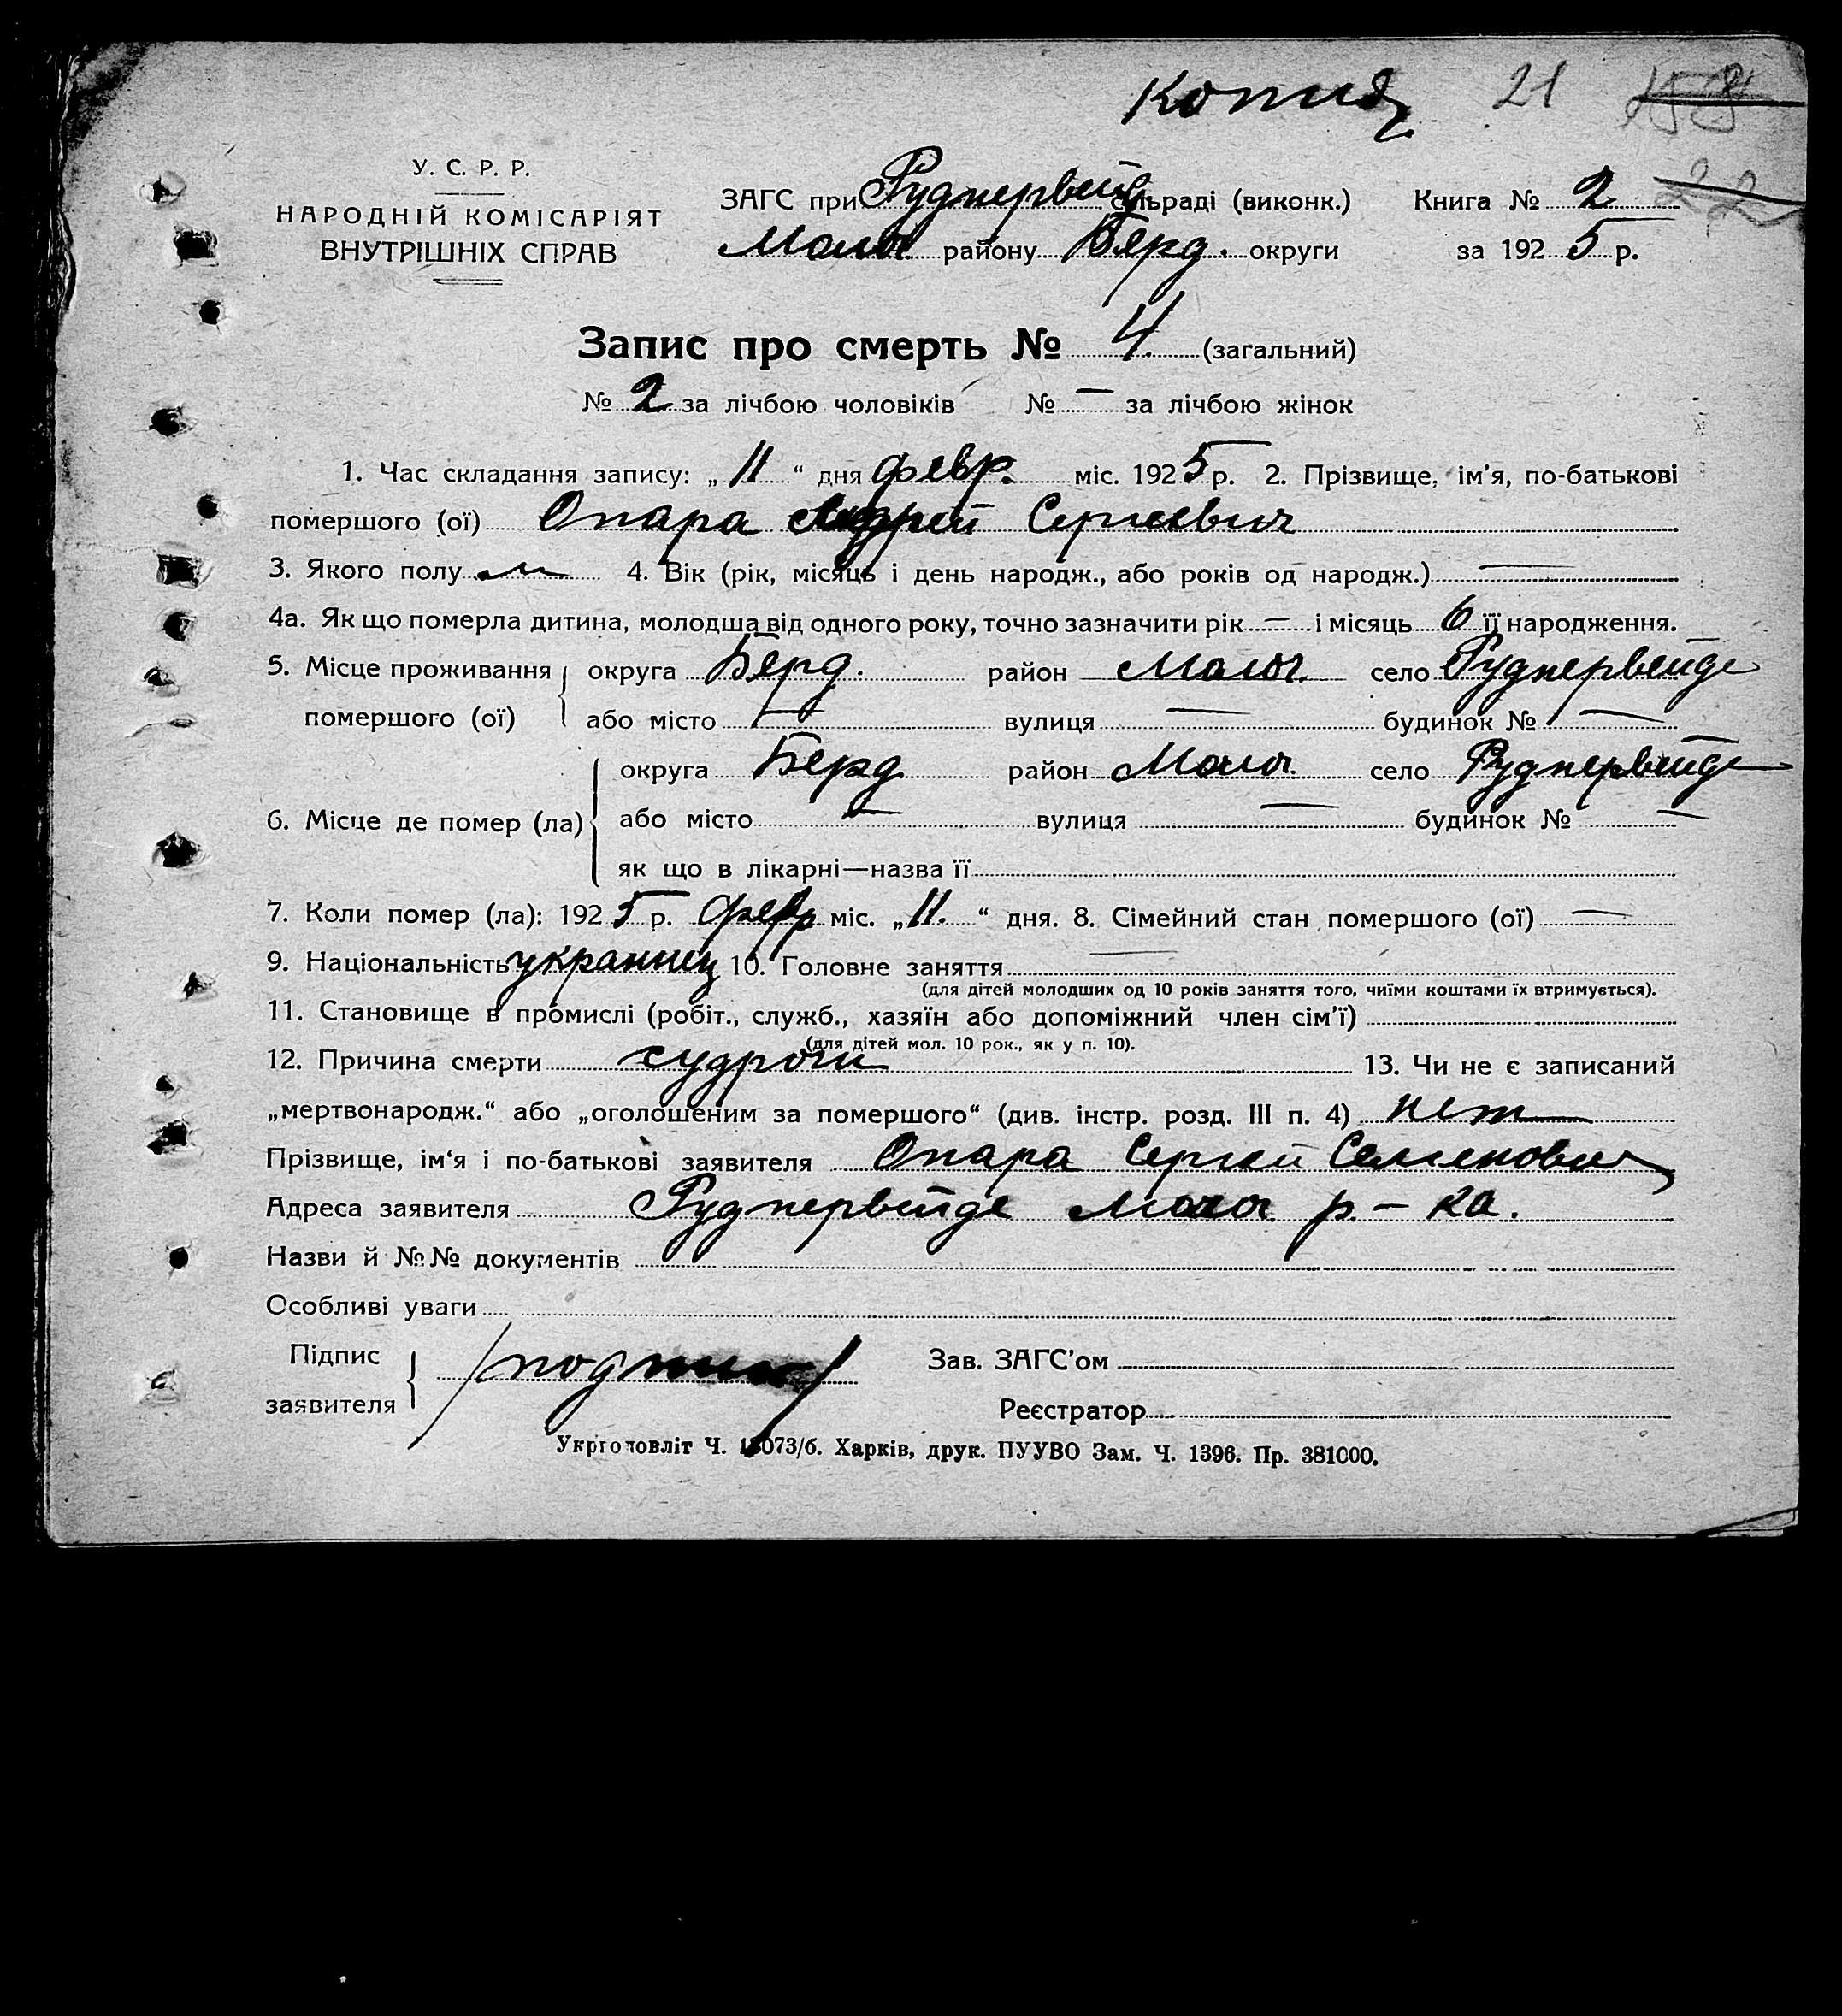 Копия 21 158
У. С. Р. Р.
НАРОДНІЙ КОМІСАРІЯТ
ВНУТРІШНІХ СПРАВ
ЗАГС при Руднервейд сільраді (виконк.) Книга № 2 22
Молоч району Берд. округи за 1925 р.
Запис про смерть № 4 (загальний)
№ 2 за лічбою чоловіків № — за лічбою жінок
1. Час складання запису: „11“ дня февр. міс. 1925 р. 2. Прізвище, ім'я, по-батькові
помершого (ої) Опара Андрей Сергеевич
3. Якого полу м 4. Вік (рік, місяць і день народж., або років од народж.) —
4а. Як що померла дитина, молодша від одного року, точно зазначити рік — і місяць 6 її народження.
5. Місце проживання округа Берд. район Молоч. село Руднервейде
помершого (ої) або місто — вулиця — будинок № —
округа Берд район Молоч. село Руднервейде
6. Місце де помер (ла) або місто — вулиця — будинок № —
як що в лікарні—назва її
7. Коли помер (ла): 1925 р. февр міс. „11.“ дня. 8. Сімейний стан помершого (ої) —
9. Національність украинец 10. Головне заняття —
(для дітей молодших од 10 років заняття того, чиїми коштами їх втримується).
11. Становище в промислі (робіт., служб., хазяїн або допоміжний член сім'ї)
(для дітей мол. 10 рок., як у п. 10).
12. Причина смерти судроги 13. Чи не є записаний
„мертвонародж.“ або „оголошеним за помершого“ (див. інстр. розд. III п. 4) нет
Прізвище, ім'я і по-батькові заявителя Опара Сергей Семенович
Адреса заявителя Руднервейде Молоч р.-ка.
Назви й №№ документів
Особливі уваги
Підпис заявителя /подпись/ Зав. ЗАГС'ом
Реєстратор
Укрголовліт Ч. 13073/б. Харків, друк. ПУУВО Зам. Ч. 1396. Пр. 381000.